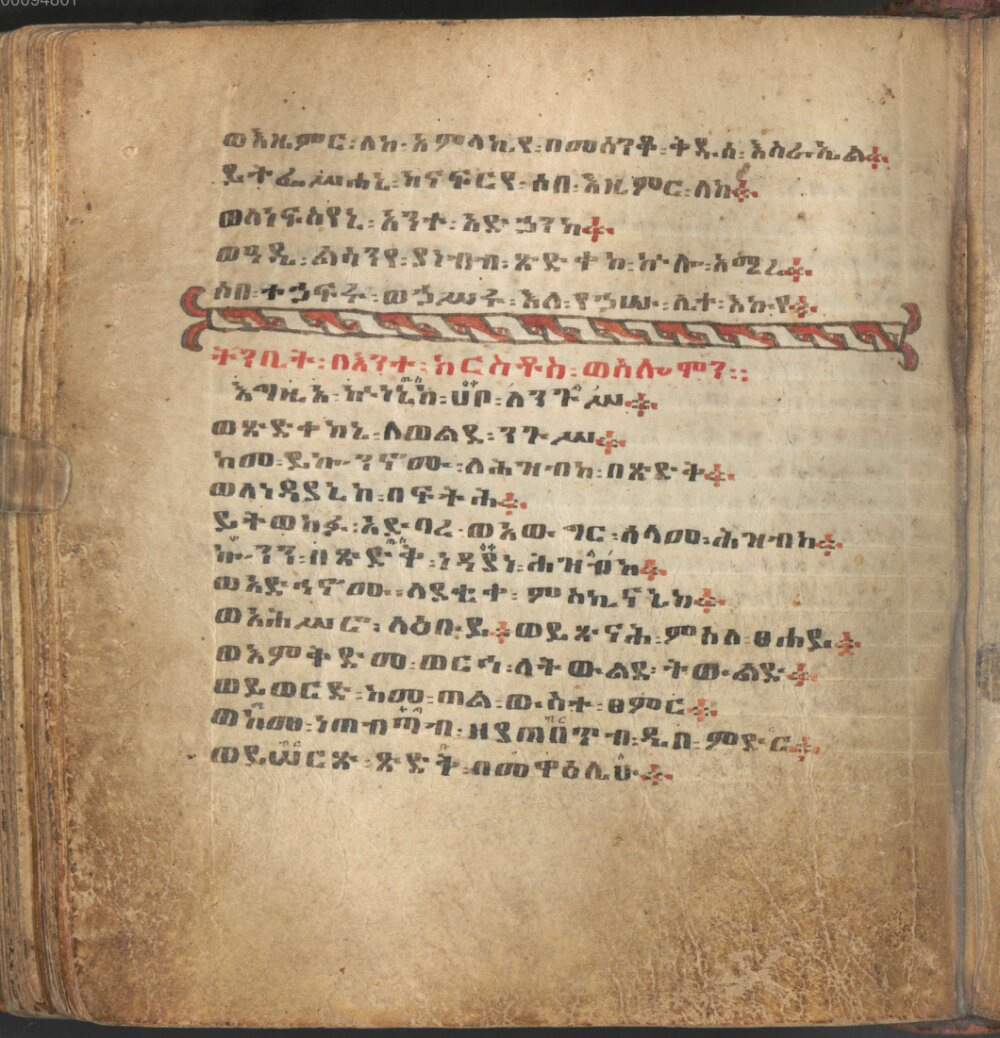 00094801
ወእዜምር፡ለከ፡አምላኪየ፡በመሰንቆ፡ቅዱሰ፡እስራኤል፨
ይትፌሥሐኒ፡ከናፍርየ፡ሰበ፡እዜምር፡ለከ፨
ወለነፍስየኒ፡አንተ፡አድኃንካ፨
ወዓዲ፡ልሳንየ፡ያነብብ፡ጽድቀከ፡ኵሎ፡አሚረ፨
ሶበ፡ተኃፍሩ፡ወኃሥሩ፡እለ፡የኃሡ፡ሊተ፡እኩየ፨
ትንቢት፡በእንተ፡ክርስቶስ፡ወሰሎሞን፡፡
እግዚኦ፡ኵነኔከ፡ሀቦ፡ለንጉሥ፨
ወጽድቀከኒ፡ለወልደ፡ንጉሥ፨
ከመ፡ይኰንኖሙ፡ለሕዝብከ፡በጽድቅ፨
ወለነዳያኒከ፡በፍትሕ፨
ይትወከፉ፡አድባረ፡ወአውግር፡ሰላመ፡ሕዝብከ፨
ኰንን፡በጽድቅ፡ነዳያነ፡ሕዝብከ፨
ወአድኅኖሙ፡ለደቂቀ፡ምስኪናኒከ፨
ወአሕሥሮ፡ለዕቡይ፨ወይጸናሕ፡ምስለ፡ፀሐይ፨
ወእምቅድመ፡ወርኅ፡ለትውልደ፡ትውልድ፨
ወይወርድ፡ከመ፡ጠል፡ውስተ፡ፀምር፨
ወከመ፡ነጠብጣብ፡ዘያጠበጥብ፡ዲበ፡ምድር፨
ወይሠርጽ፡ጽድቅ፡በመዋዕሊሁ፨